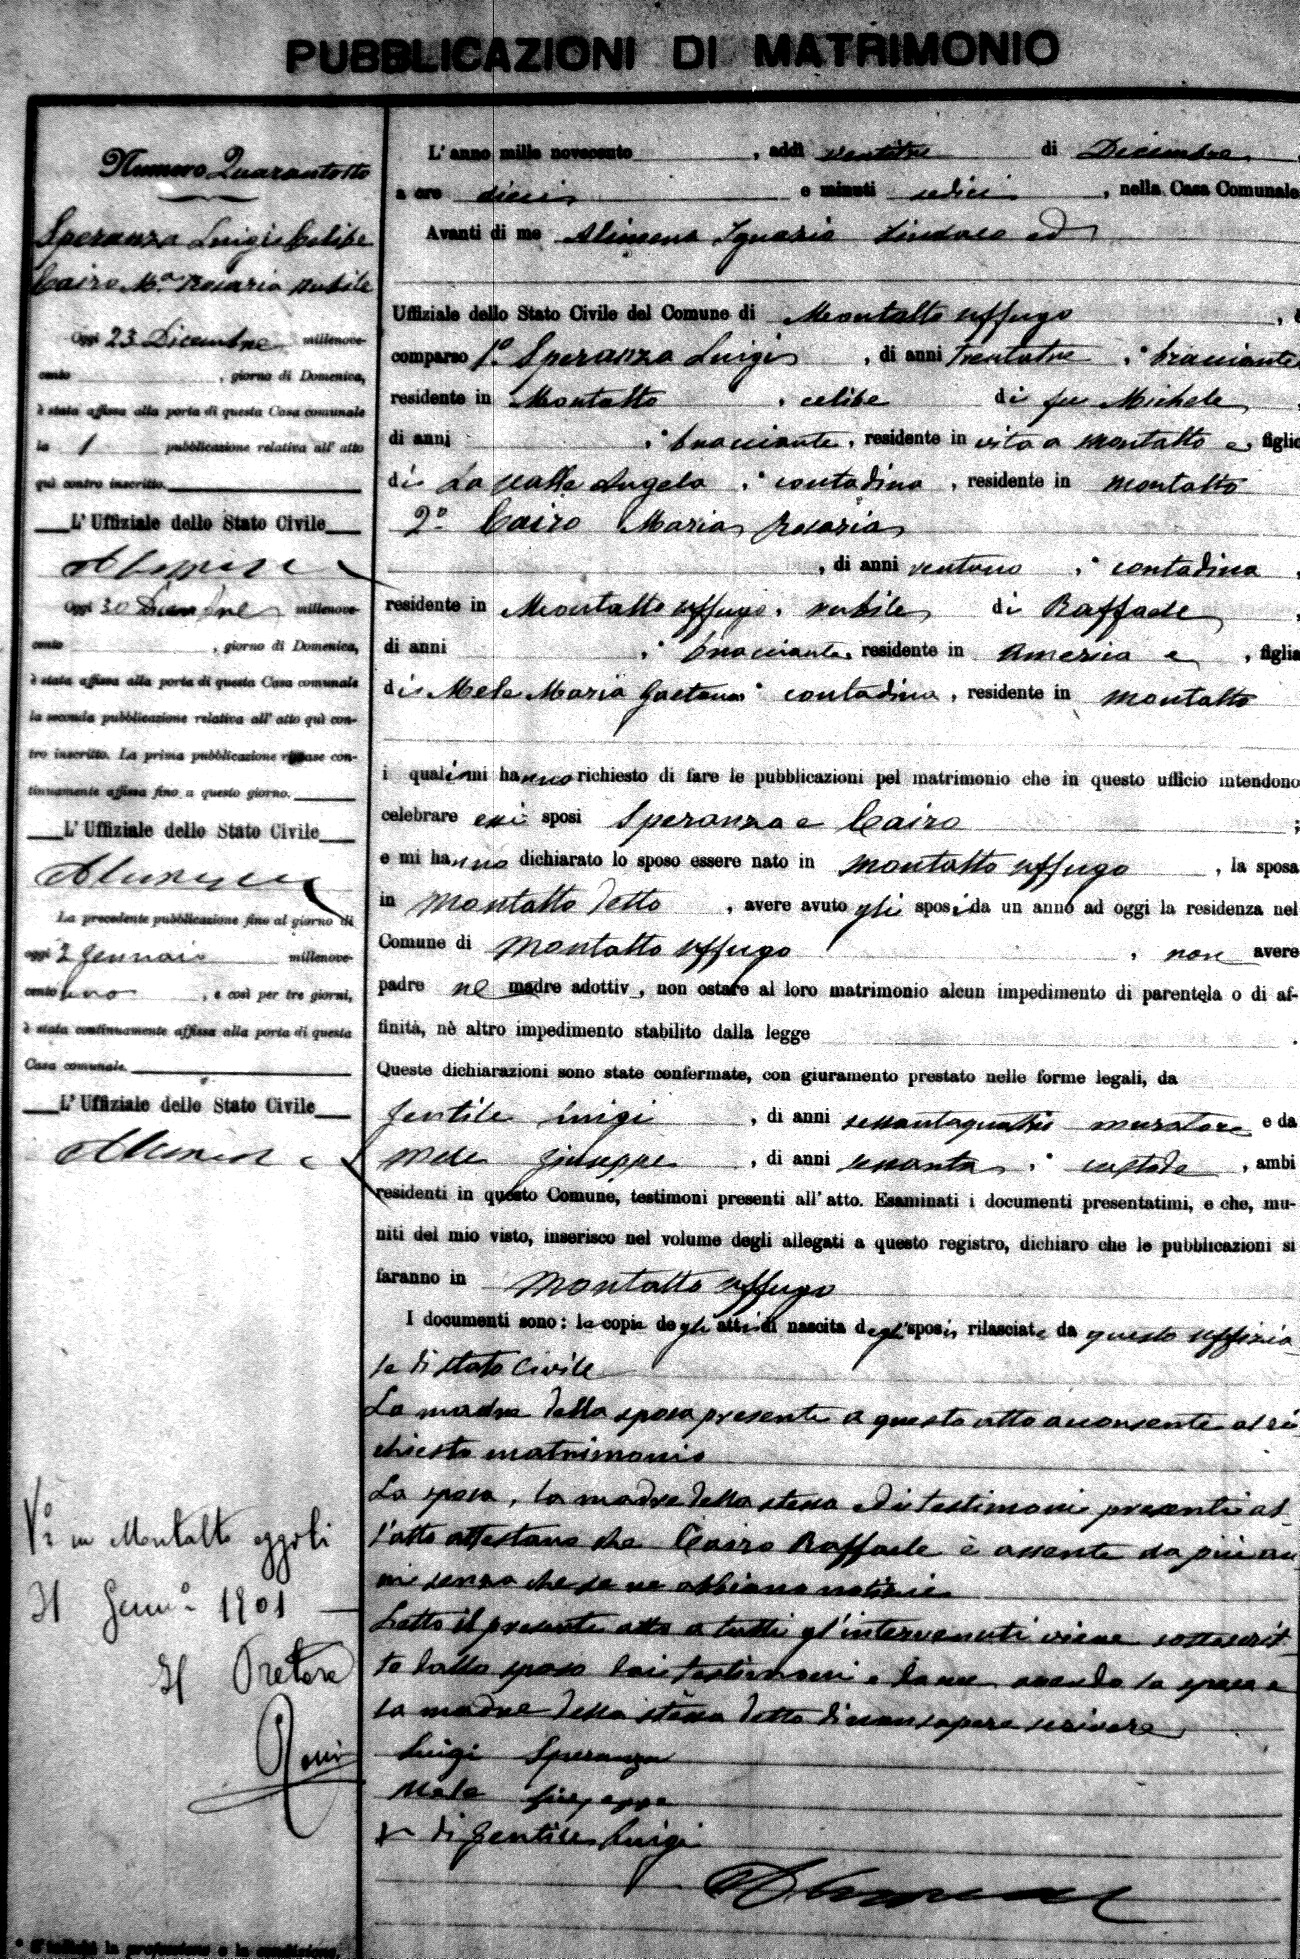 PUBBLICAZIONI DI MATRIMONIO
Numero Quarantotto
Speranza Luigi Celibe
Cairo M.a Rosaria nubile
Oggi 23 Dicembre millenove-
cento , giorno di Domenica,
è stata affissa alla porta di questa Casa comunale
la 1 pubblicazione relativa all' atto
quì contro inscritto.
L' Uffiziale dello Stato Civile
Alimena
Oggi 30 Dicembre millenove-
cento , giorno di Domenica,
è stata affissa alla porta di questa Casa comunale
la seconda pubblicazione relativa all' atto quì con-
tro inscritto. La prima pubblicazione rimase con-
tinuamente affissa fino a questo giorno.
L' Uffiziale dello Stato Civile
Alimena
La precedente pubblicazione fino al giorno di
oggi 2 Gennaio millenove-
cento uno , e così per tre giorni,
è stata continuamente affissa alla porta di questa
Casa comunale.
L' Uffiziale dello Stato Civile
Alimena
V.o in Montalto oggi li
31 Genn.o 1901
Il Pretore
L' anno mille novecento , addì ventitre di Dicembre ,
a ore dieci e minuti sedici , nella Casa Comunale
Avanti di me Alimena Ignazio Sindaco ed
Uffiziale dello Stato Civile del Comune di Montalto Uffugo ,
comparso 1.o Speranza Luigi , di anni trentatre , * bracciante
residente in Montalto , celibe di fu Michele ,
di anni , * bracciante , residente in vita a Montalto e , figlio
di La Valle Angela , * contadina , residente in Montalto
2.o Cairo Maria Rosaria
, di anni ventuno , * contadina ,
residente in Montalto Uffugo , nubile di Raffaele ,
di anni , * bracciante , residente in America e , figlia
di Mele Maria Gaetana * contadina , residente in Montalto
i quali mi hanno richiesto di fare le pubblicazioni pel matrimonio che in questo ufficio intendono
celebrare essi sposi Speranza e Cairo ;
e mi hanno dichiarato lo sposo essere nato in Montalto Uffugo , la sposa
in Montalto detto , avere avuto gli sposi da un anno ad oggi la residenza nel
Comune di Montalto Uffugo , non avere
padre nè madre adottiv , non ostare al loro matrimonio alcun impedimento di parentela o di af-
finità, nè altro impedimento stabilito dalla legge .
Queste dichiarazioni sono state confermate, con giuramento prestato nelle forme legali, da
Gentile Luigi , di anni sessantaquattro muratore e da
Mele Giuseppe , di anni sessanta , * custode , ambi
residenti in questo Comune, testimoni presenti all' atto. Esaminati i documenti presentatimi, e che, mu-
niti del mio visto, inserisco nel volume degli allegati a questo registro, dichiaro che le pubblicazioni si
faranno in Montalto Uffugo
I documenti sono: le copie degli atti di nascita degl' sposi, rilasciate da questo uffizia
le di stato Civile
La madre della sposa presente a questo atto acconsente al ri
chiesto matrimonio
La sposa, la madre della stessa ed i testimoni presenti al-
l'atto attestano che Cairo Raffaele è assente da più an
ni senza che se ne abbiano notizie
Letto il presente atto a tutti gl'intervenuti viene sottoscrit-
to dallo sposo dai testimoni e da me avendo la sposa e
la madre della stessa detto di non sapere scrivere
Luigi Speranza
Mele Giuseppe
di Gentile Luigi
Alimena
* S'indichi la professione o la condizione.